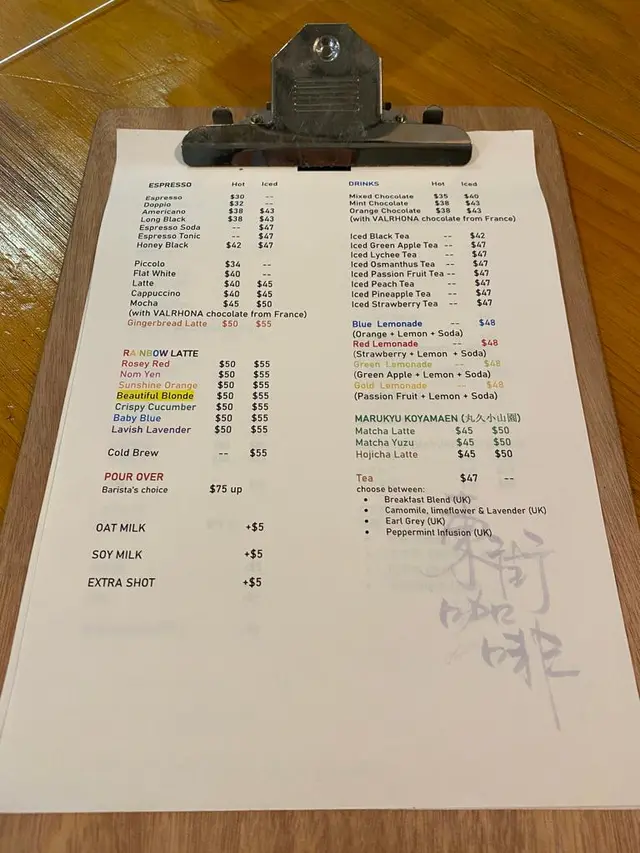 ESPRESSO Hot Iced
Espresso $30 --
Doppio $32 --
Americano $38 $43
Long Black $38 $43
Espresso Soda -- $47
Espresso Tonic -- $47
Honey Black $42 $47
Piccolo $34 --
Flat White $40 --
Latte $40 $45
Cappuccino $40 $45
Mocha $45 $50
(with VALRHONA chocolate from France)
Gingerbread Latte $50 $55
RAINBOW LATTE
Rosey Red $50 $55
Nom Yen $50 $55
Sunshine Orange $50 $55
Beautiful Blonde $50 $55
Crispy Cucumber $50 $55
Baby Blue $50 $55
Lavish Lavender $50 $55
Cold Brew -- $55
POUR OVER
Barista's choice $75 up
OAT MILK +$5
SOY MILK +$5
EXTRA SHOT +$5
DRINKS Hot Iced
Mixed Chocolate $35 $40
Mint Chocolate $38 $43
Orange Chocolate $38 $43
(with VALRHONA chocolate from France)
Iced Black Tea -- $42
Iced Green Apple Tea -- $47
Iced Lychee Tea -- $47
Iced Osmanthus Tea -- $47
Iced Passion Fruit Tea -- $47
Iced Peach Tea -- $47
Iced Pineapple Tea -- $47
Iced Strawberry Tea -- $47
Blue Lemonade -- $48
(Orange + Lemon + Soda)
Red Lemonade -- $48
(Strawberry + Lemon + Soda)
Green Lemonade -- $48
(Green Apple + Lemon + Soda)
Gold Lemonade -- $48
(Passion Fruit + Lemon + Soda)
MARUKYU KOYAMAEN (丸久小山園)
Matcha Latte $45 $50
Matcha Yuzu $45 $50
Hojicha Latte $45 $50
Tea $47 --
choose between:
• Breakfast Blend (UK)
• Camomile, limeflower & Lavender (UK)
• Earl Grey (UK)
• Peppermint Infusion (UK)
東街
咖啡